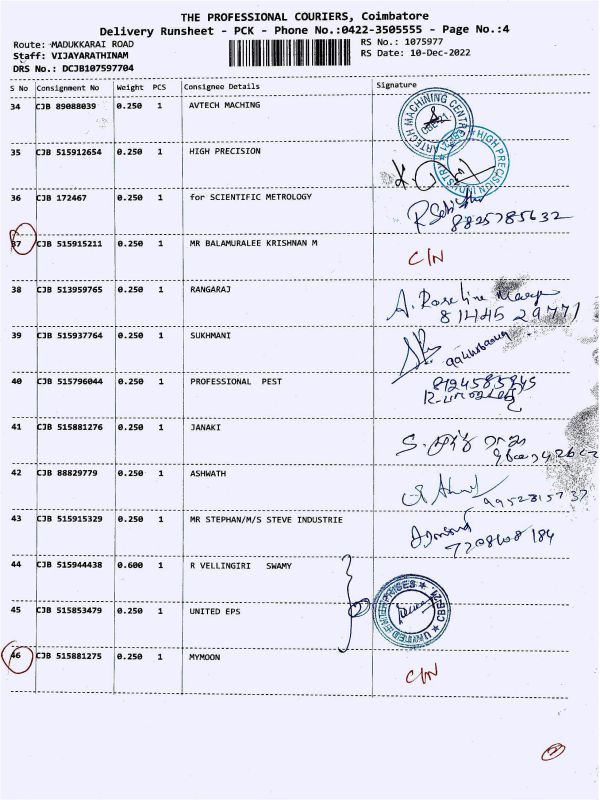 THE PROFESSIONAL COURIERS, Coimbatore
Delivery Runsheet - PCK - Phone No.:0422-3505555 - Page No.:4
Route: MADUKKARAI ROAD
Staff: VIJAYARATHINAM
DRS No.: DCJB107597704
RS No.: 1075977
RS Date: 10-Dec-2022
S No Consignment No Weight PCS Consignee Details Signature
34 CJB 89088039 0.250 1 AVTECH MACHING
35 CJB 515912654 0.250 1 HIGH PRECISION
HIGH PRECISION INDUSTRY
36 CJB 172467 0.250 1 for SCIENTIFIC METROLOGY
8825785632
37 CJB 515915211 0.250 1 MR BALAMURALEE KRISHNAN M C/N
38 CJB 513959765 0.250 1 RANGARAJ
81445 29771
39 CJB 515937764 0.250 1 SUKHMANI
40 CJB 515796044 0.250 1 PROFESSIONAL PEST
8124585945
41 CJB 515881276 0.250 1 JANAKI
42 CJB 88829779 0.250 1 ASHWATH
43 CJB 515915329 0.250 1 MR STEPHAN/M/S STEVE INDUSTRIE
44 CJB 515944438 0.600 1 R VELLINGIRI SWAMY
45 CJB 515853479 0.250 1 UNITED EPS
UNITED ENTERPRISES
46 CJB 515881275 0.250 1 MYMOON C/N